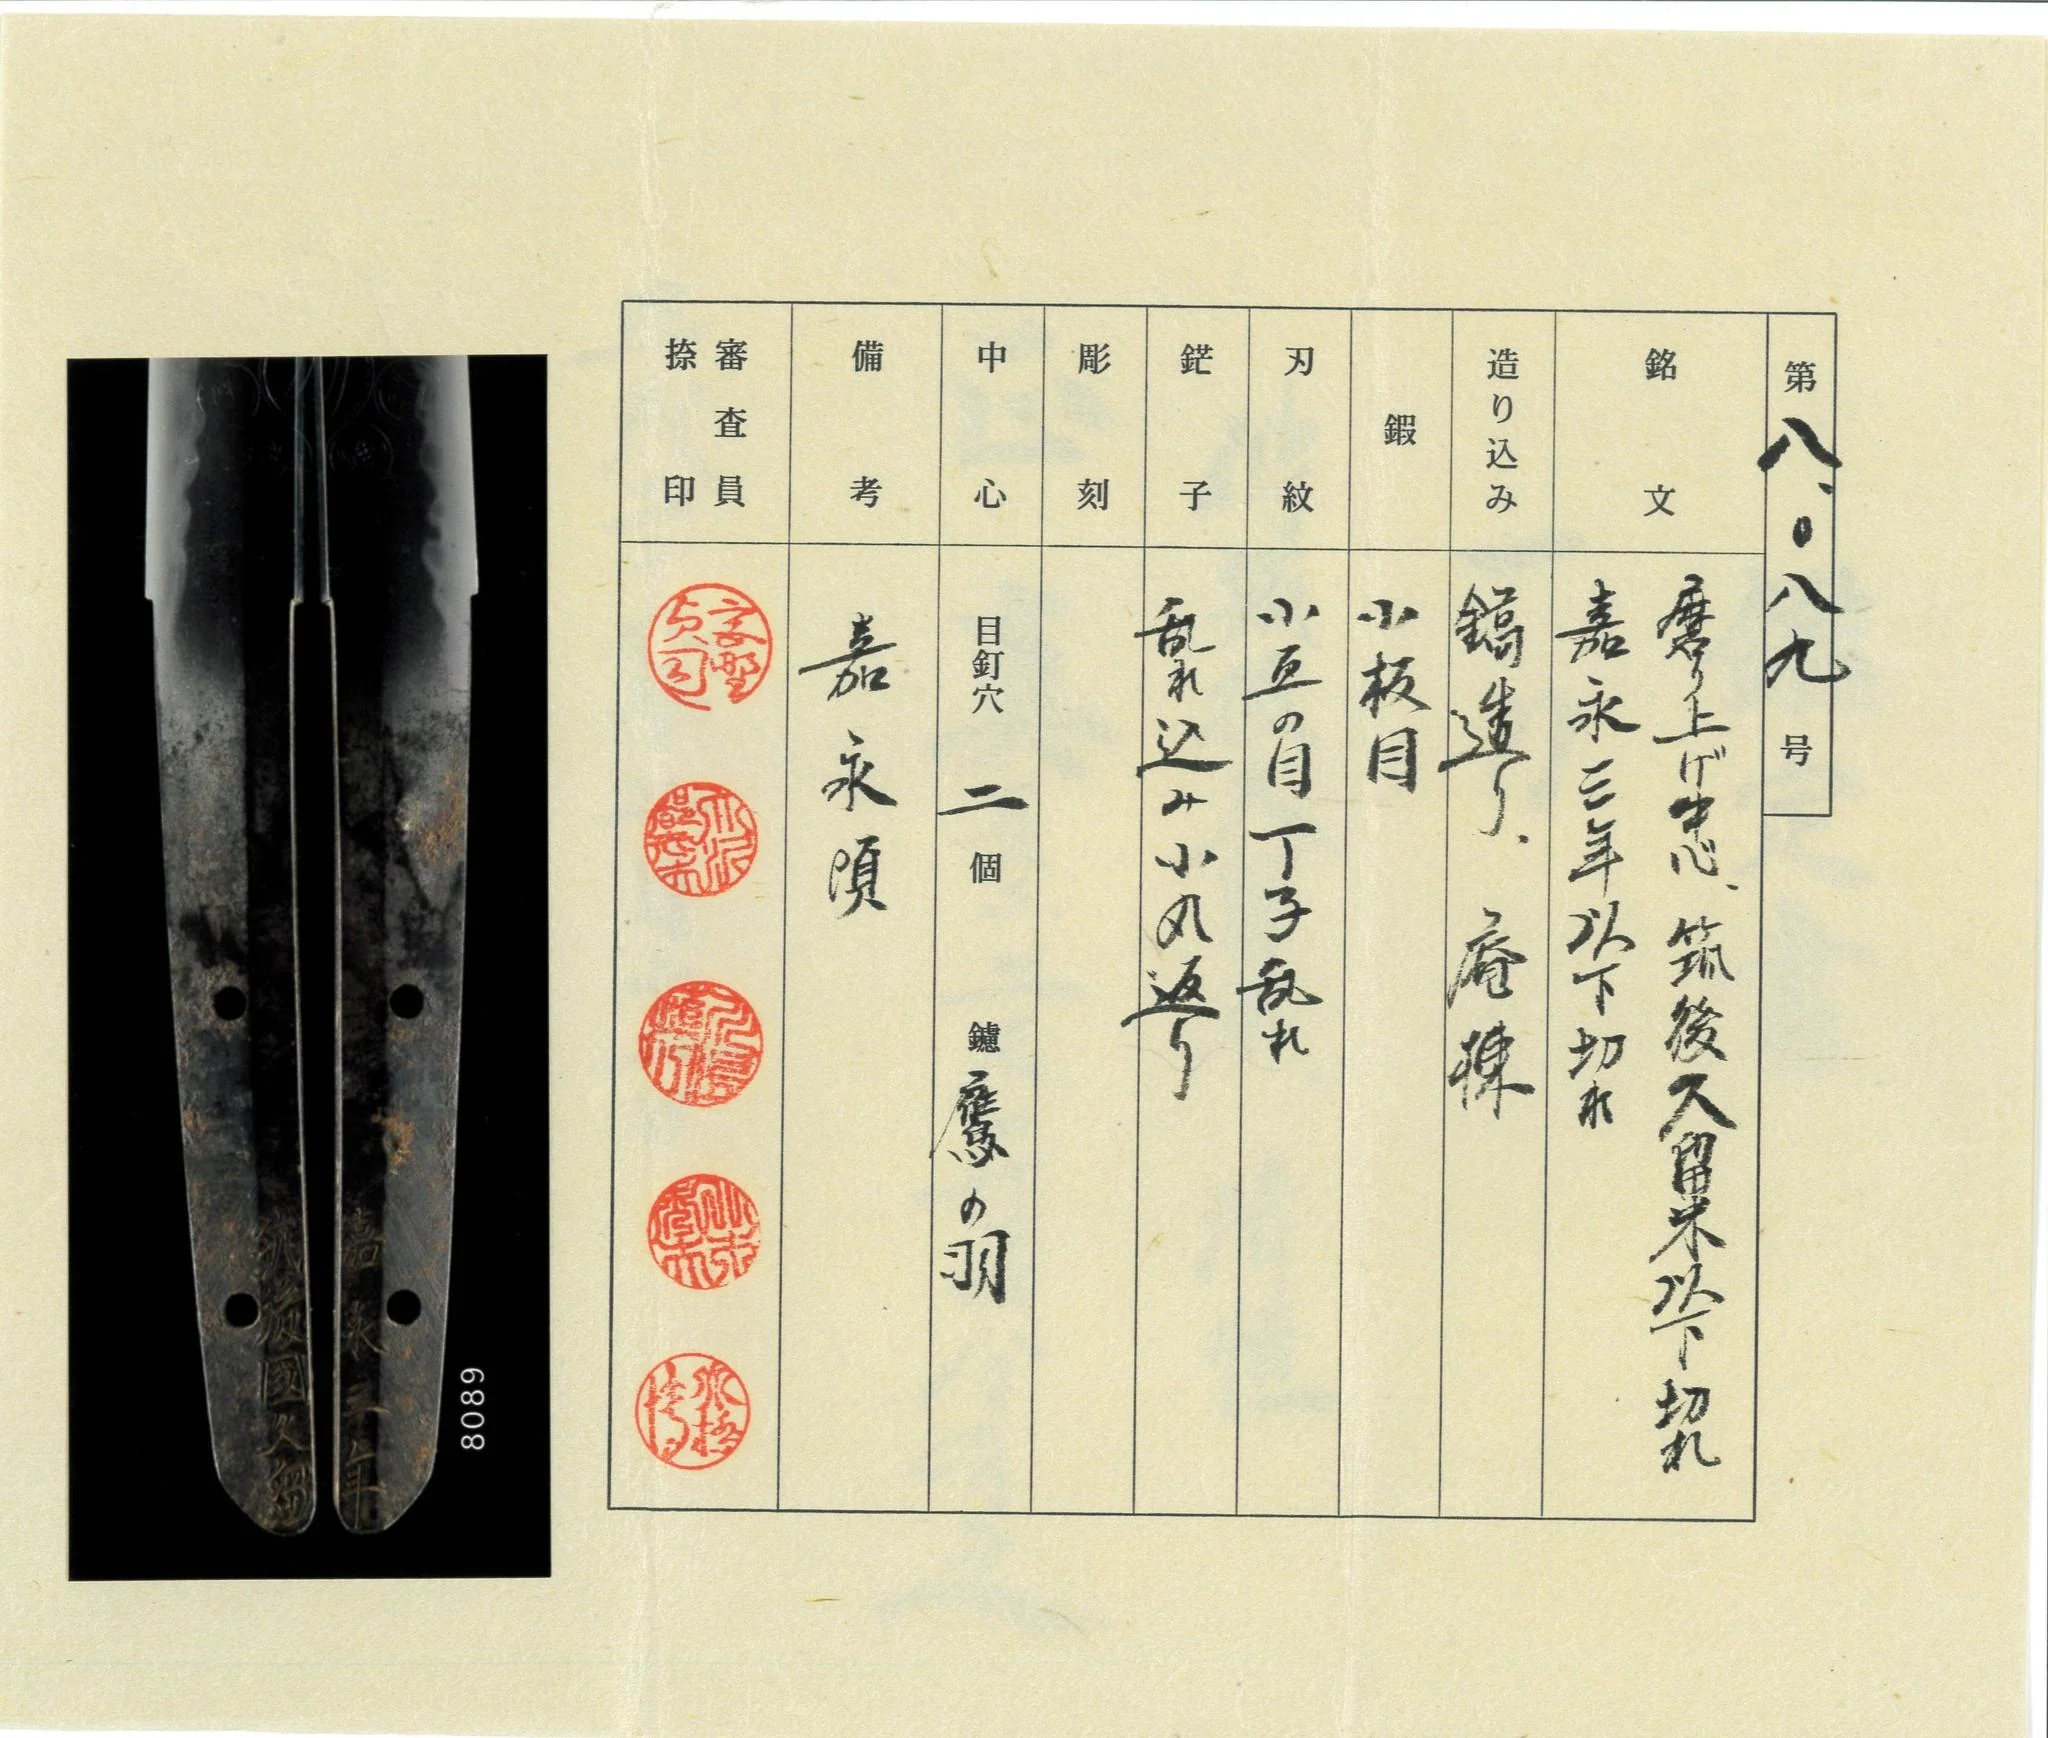 第八、〇八九号
銘文
磨り上げ中心、筑後久留米以下切れ
嘉永三年以下切れ
造り込み
鎬造り、庵棟
鍜
小板目
刃紋
小互の目丁子乱れ
鋩子
乱れ込み小丸返り
彫刻
中心
目釘穴 二 個 鑢 鷹の羽
備考
嘉永頃
審査員
捺印
嘉永三年
8089